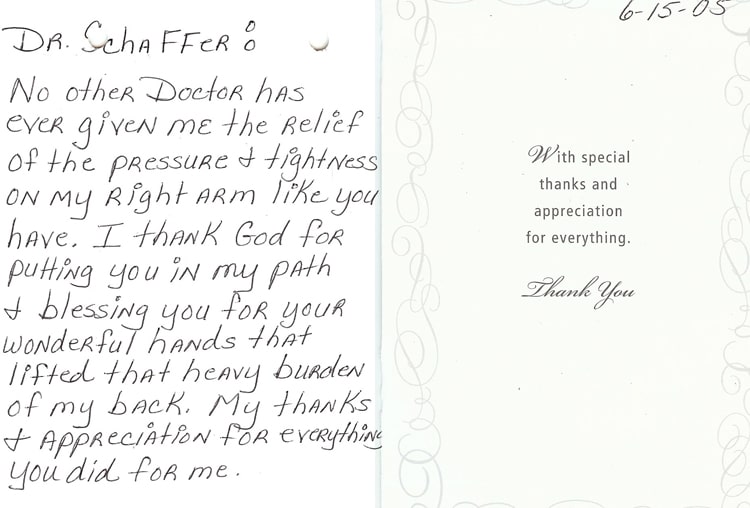 DR. SchAFFER:
No other Doctor has
ever given me the relief
of the pressure & tightness
on my right arm like you
have. I thank God for
putting you in my path
& blessing you for your
wonderful hands that
lifted that heavy burden
of my back. My thanks
& appreciation for everything
you did for me.
6-15-05
With special
thanks and
appreciation
for everything.
Thank You